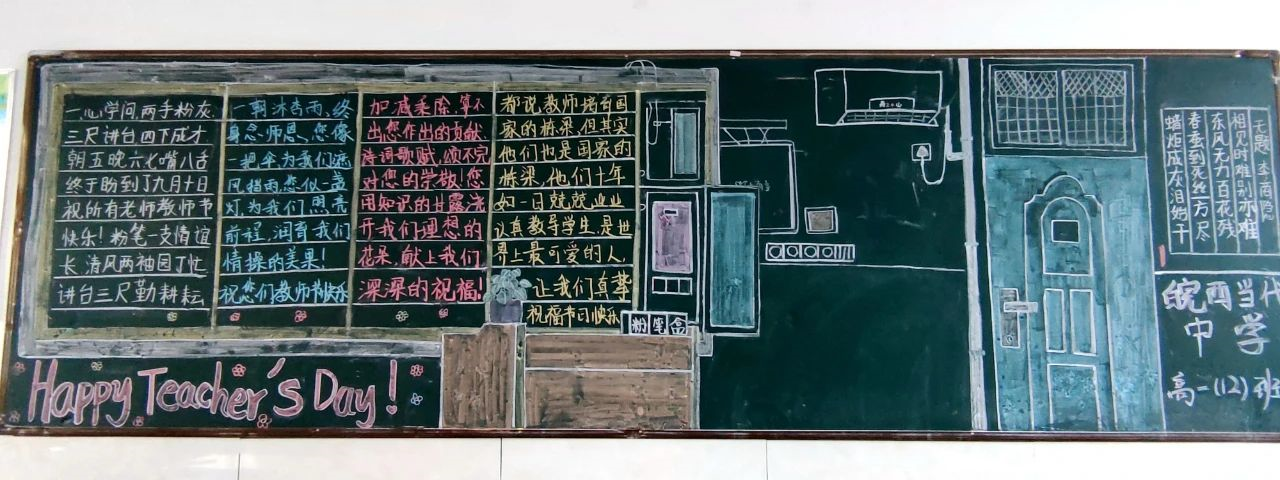 一心学问,两手粉灰.
三尺讲台四下成才
朝五晚六七嘴八舌
终于盼到了九月十日
祝所有老师教师节
快乐!粉笔一支情谊
长,清风两袖园丁忙
讲台三尺勤耕耘
一朝沐杏雨,终
身念师恩,您像
一把伞为我们遮
风挡雨,您似一盏
灯,为我们照亮
前程,润育我们
情操的美果!
祝您们教师节快乐
加减乘除,算不
出您作出的贡献
诗词歌赋,颂不完
对您的崇敬!您
用知识的甘露,浇
开我们理想的
花朵,献上我们
深深的祝福!
都说,教师培育国
家的栋梁,但其实
他们也是国家的
栋梁,他们十年
如一日兢兢业业
认真教导学生,是世
界上最可爱的人,
让我们真挚
祝福节日快乐
粉笔盒
Happy Teacher's Day!
无题 李商隐
相见时难别亦难
东风无力百花残
春蚕到死丝方尽
蜡炬成灰泪始干
皖西当代
中学
高一(12)班